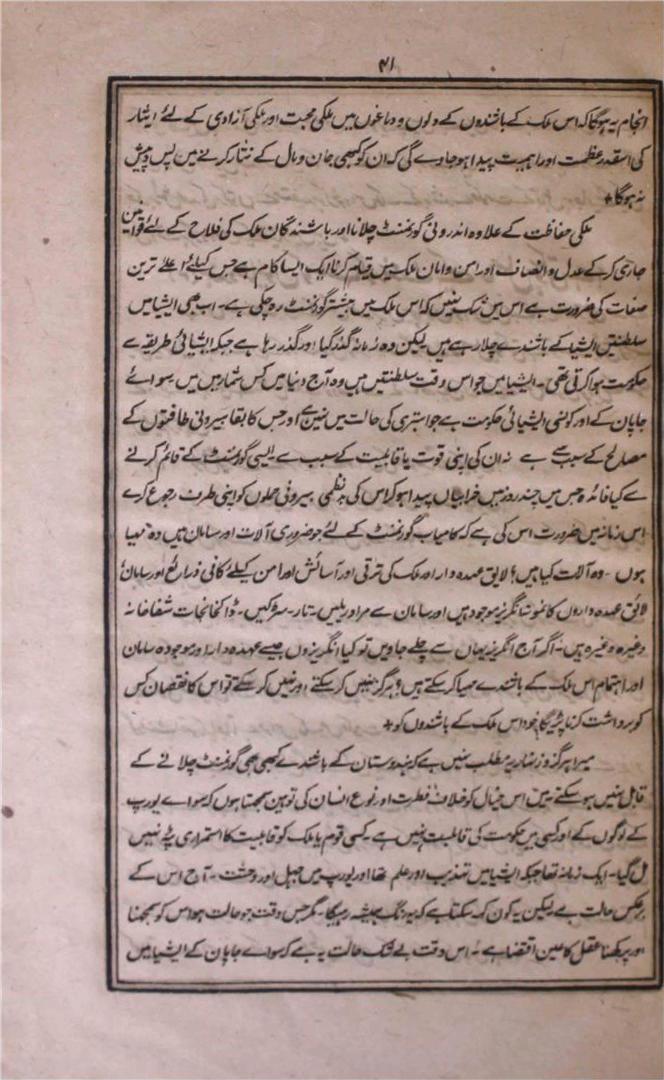 ۴۱
انجام یہ ہوگا کہ اس ملک کے باشندوں کے دلوں و دماغوں میں ملکی محبت اور ملکی آزادی کے لئے ایثار
کی اسقدر عظمت اور اہمیت پیدا ہو جاوے گی کہ ان کو کبھی جان و مال کے نثار کرنے میں پس و پیش
نہ ہوگا +
ملکی حفاظت کے علاوہ اندرونی گورنمنٹ چلانا اور باشندگان ملک کی فلاح کے لئے قوانین
جاری کر کے عدل و انصاف اور امن و امان ملک میں قیام کرنا ایک ایسا کام ہے جس کیلئے اعلے ترین
صفات کی ضرورت ہے اس میں شک نہیں کہ اس ملک میں بیشتر گورنمنٹ رہ چکی ہے ۔ اب بھی ایشیا میں
سلطنتیں ایشیا کے باشندے چلا رہے ہیں لیکن وہ زمانہ گذر گیا اور گذر رہا ہے جبکہ ایشیائی طریقہ سے
حکومت ہوا کرتی تھی ۔ ایشیا میں جو اس وقت سلطنتیں ہیں وہ آج دنیا میں کس شمار میں ہیں سوائے
جاپان کے اور کونسی ایشیائی حکومت ہے جو ابتری کی حالت میں نہیں ہے اور جس کا بقا بیرونی طاقتوں کے
مصالح کے سبب سے ہے نہ ان کی اپنی قوت یا قابلیت کے سبب سے ایسی گورنمنٹ کے قائم کرنے
سے کیا فائدہ جس میں چند روز میں خرابیاں پیدا ہو کر اس کی بدنظمی بیرونی حملوں کو اپنی طرف رجوع کرے
اس زمانہ میں ضرورت اس کی ہے کہ کامیاب گورنمنٹ کے لئے جو ضروری آلات اور سامان ہیں وہ مہیا
ہوں ۔ وہ آلات کیا ہیں؟ لایق عہدہ دار اور ملک کی ترقی اور آسائش اور امن کیلئے کافی ذرائع اور سامان
لائق عہدہ داروں کا نمونہ انگریز موجود ہیں اور سامان سے مراد ریلیں ۔ تار ۔ سڑکیں ۔ ڈاکخانجات شفاخانہ
وغیرہ وغیرہ ہیں ۔ اگر آج انگریز یہاں سے چلے جاویں تو کیا انگریزوں جیسے عہدہ دار اور موجودہ سامان
اور اہتمام اس ملک کے باشندے مہیا کر سکتے ہیں؟ ہرگز نہیں کر سکتے اور نہیں کر سکتے تو اس کا نقصان کس
کو برداشت کرنا پڑیگا خود اس ملک کے باشندوں کو +
میرا ہرگز و زنہار یہ مطلب نہیں ہے کہ ہندوستان کے باشندے کبھی بھی گورنمنٹ چلانے کے
قابل نہیں ہو سکتے میں اس خیال کو خلاف فطرت اور نوع انسان کی توہین سمجھتا ہوں کہ سوائے یورپ
کے لوگوں کے اور کسی میں حکومت کی قابلیت نہیں ہے ۔ کسی قوم یا ملک کو قابلیت کا استمراری پٹہ نہیں
مل گیا ۔ ایک زمانہ تھا جبکہ ایشیا میں تہذیب اور علم تھا اور یورپ میں جہل اور وحشت ۔ آج اس کے
برعکس حالت ہے لیکن یہ کون کہہ سکتا ہے کہ یہ رنگ ہمیشہ رہیگا ۔ مگر جس وقت جو حالت ہو اس کو سمجھنا
اور پرکھنا عقل کا عین اقتضا ہے ۔ اس وقت بے شک حالت یہ ہے کہ سوائے جاپان کے ایشیا میں